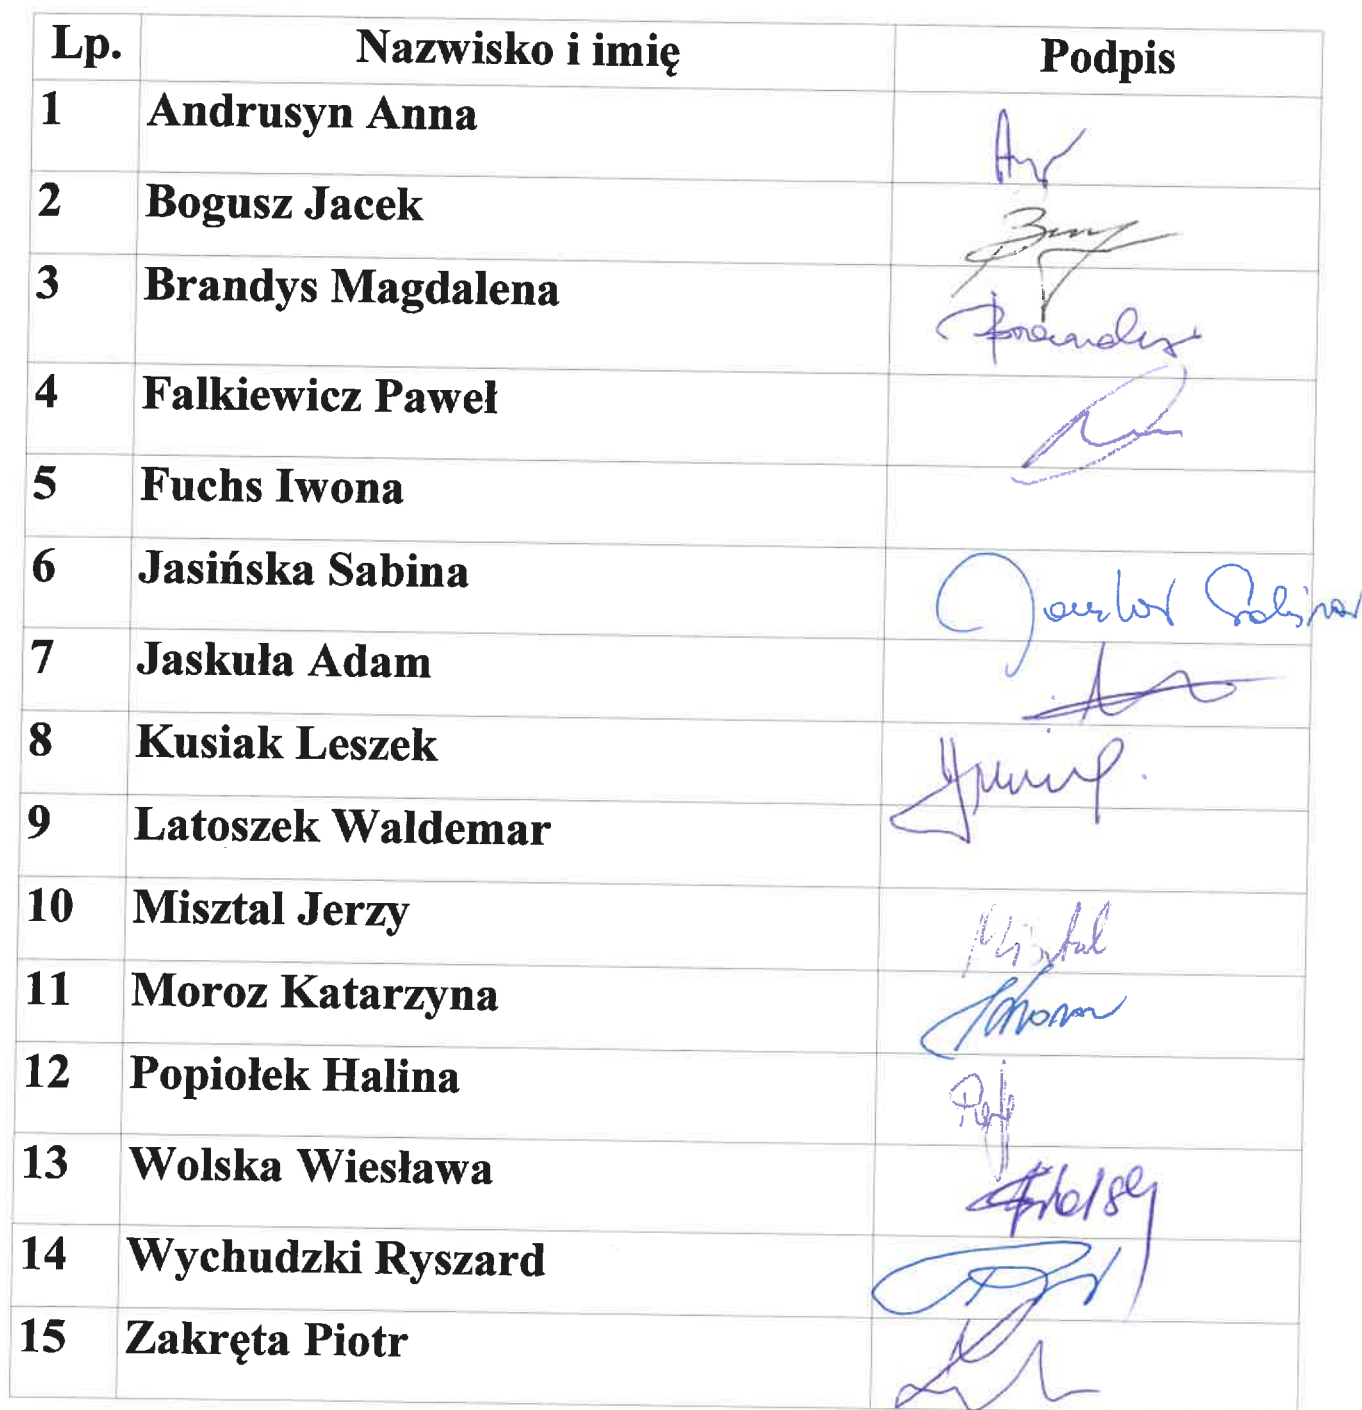 Lp. Nazwisko i imię Podpis
1 Andrusyn Anna
2 Bogusz Jacek
3 Brandys Magdalena Brandys
4 Falkiewicz Paweł
5 Fuchs Iwona
6 Jasińska Sabina
7 Jaskuła Adam
8 Kusiak Leszek
9 Latoszek Waldemar
10 Misztal Jerzy Misztal
11 Moroz Katarzyna
12 Popiołek Halina
13 Wolska Wiesława
14 Wychudzki Ryszard
15 Zakręta Piotr